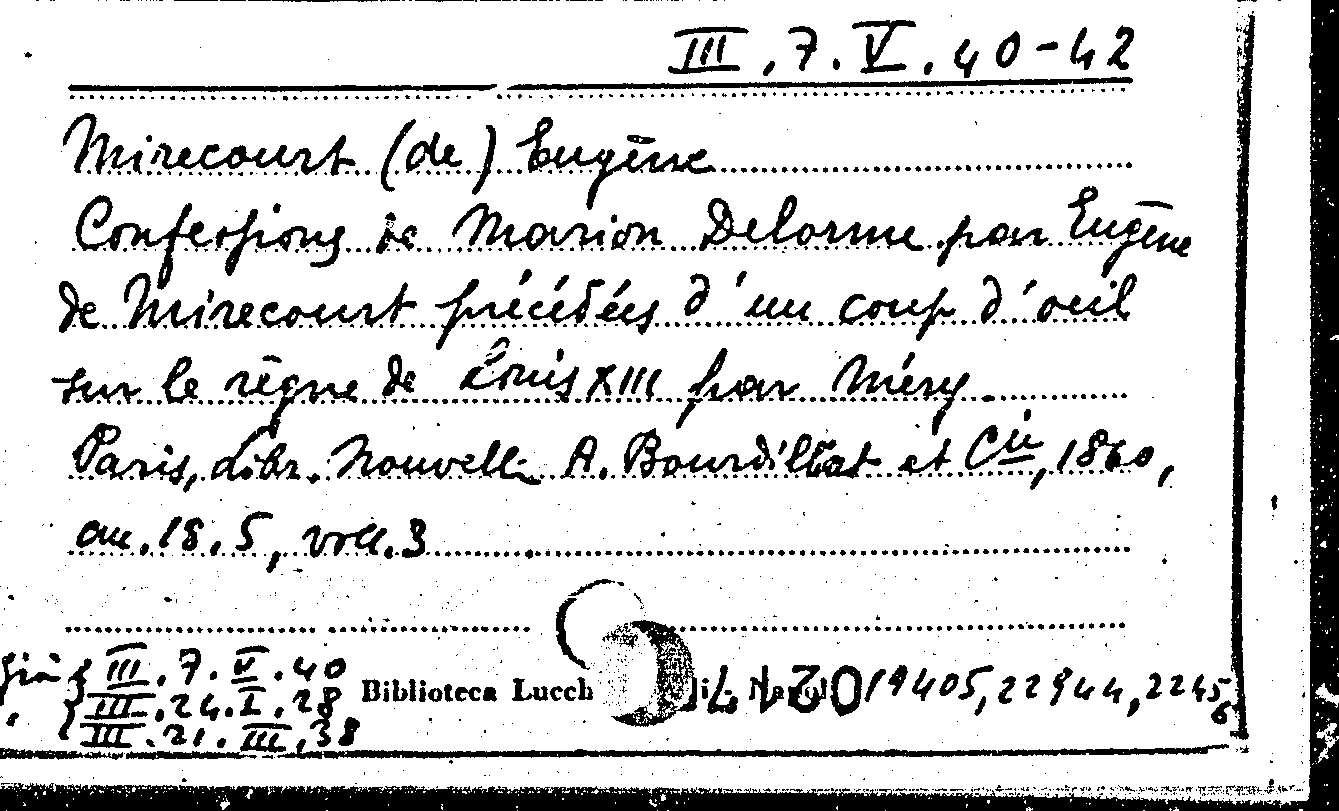 III.7.V.40-42
Mirecourt (de) Eugène
Confessions de Marion Delorme par Eugène
de Mirecourt précédées d'un coup d'oeil
sur le règne de Louis XIII par Méry.
Paris, Libr. Nouvelle A. Bourdilliat et Cie, 1860,
cm. 18.5, voll. 3
Già III.7.V.40
III.24.I.28
III.21.III.38
Biblioteca Lucch
19405, 22944, 22456